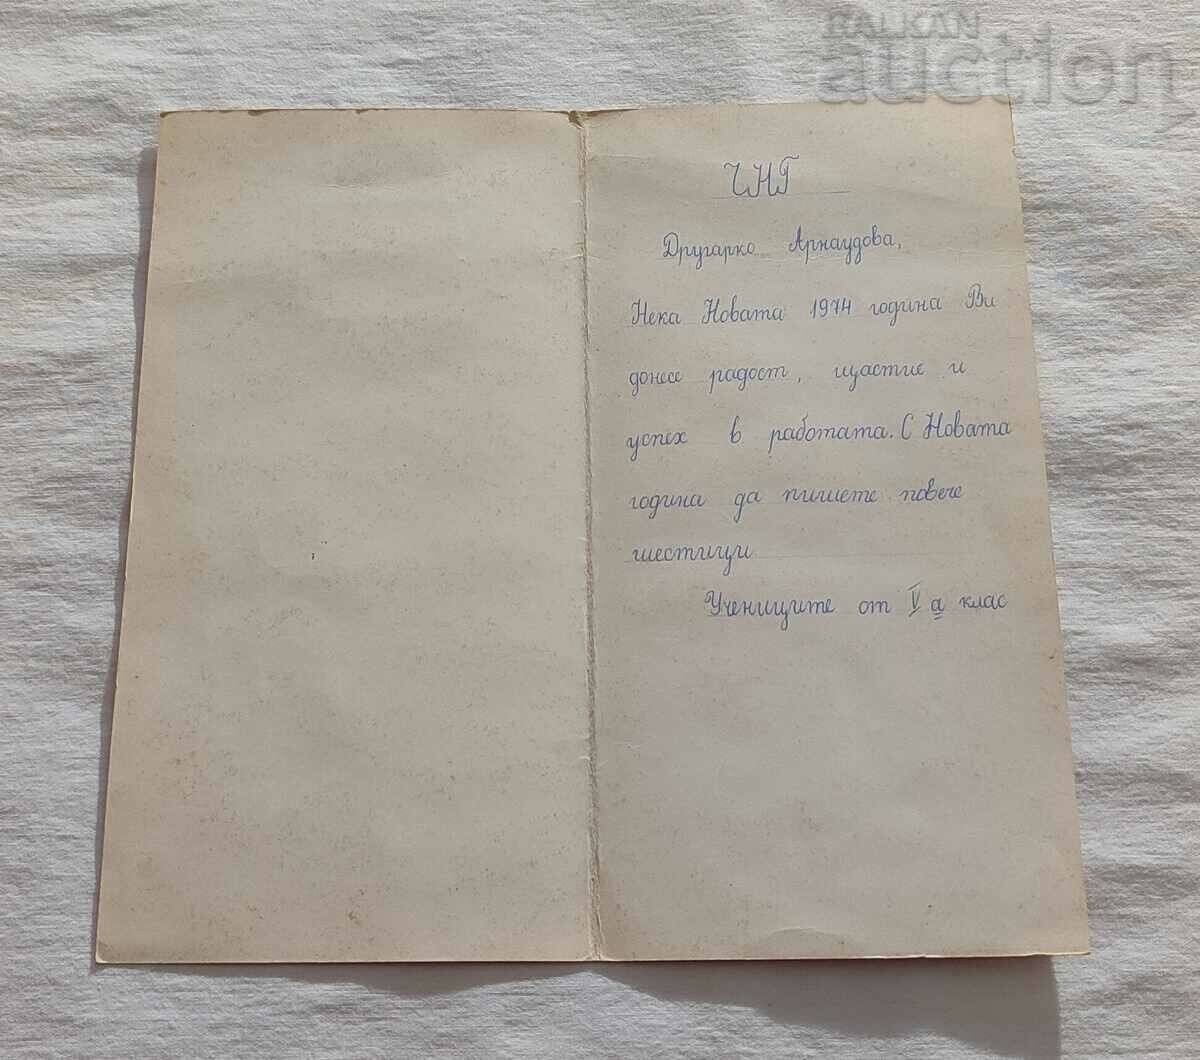 BALKAN
auction
ЧНГ
Другарко Арнаудова,
Нека Новата 1974 година Ви
донесе радост, щастие и
успех в работата. С Новата
година да пишете повече
шестици
Учениците от V а клас